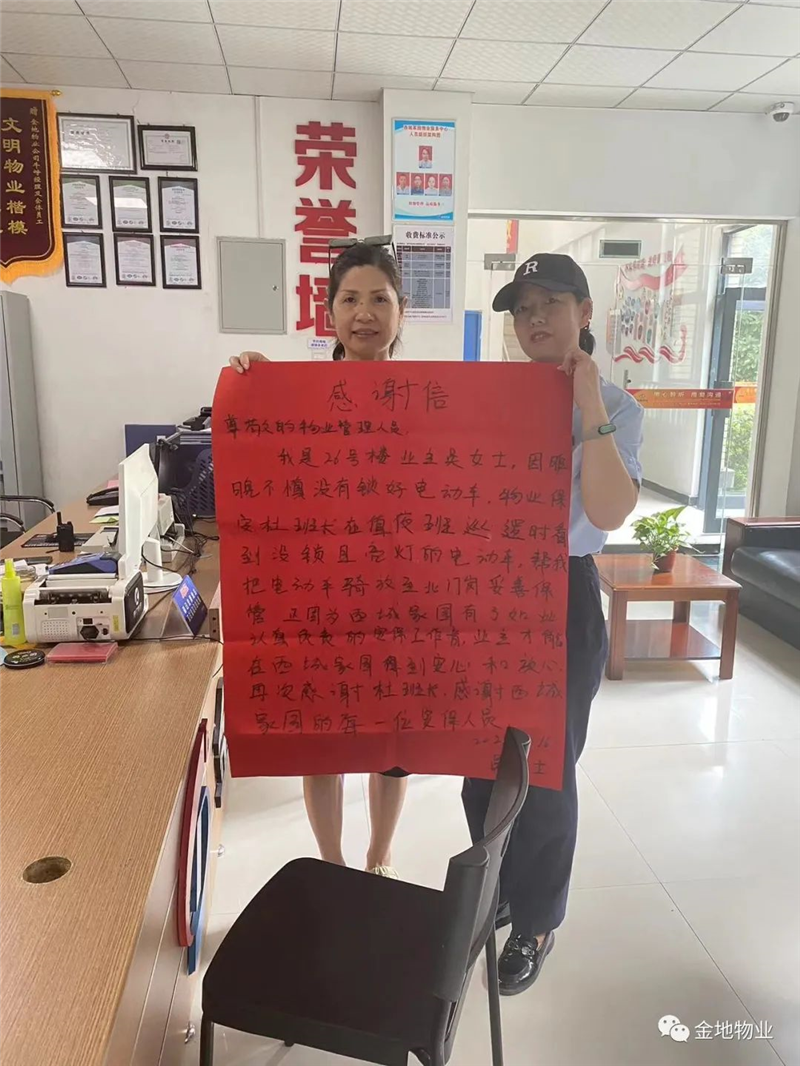 赠
金地物业公司牛峰经理及全体员工
文明物业楷模
荣誉墙
收费标准公示
R
感谢信
尊敬的物业管理人员
我是26号楼业主吴女士，因昨
晚不慎没有锁好电动车，物业保
安杜班长在值夜班巡逻时看
到没锁且亮灯的电动车，帮我
把电动车骑放至北门岗妥善保
管 正因为西城家园有了如此
认真负责的安保工作者，业主才能
在西城家园得到安心和放心
再次感谢杜班长，感谢西城
家园的每一位安保人员
16
士
金地物业